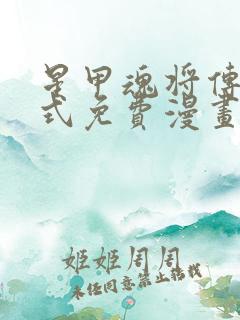 星甲魂将傳
式免費漫畫
姬姬周周
未经同意禁止轉載